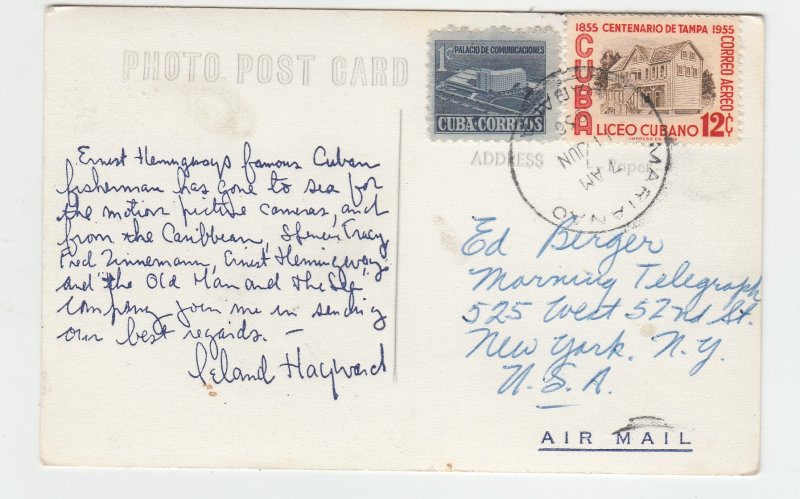 PHOTO POST CARD
Ernest Hemingways famous Cuban
fisherman has gone to sea for
the motion picture cameras, and
from the Caribbean, Spencer Tracy,
Fred Zinnemann, Ernest Hemingway,
and "the Old Man and the Sea"
company join me in sending
our best regards. —
Leland Hayward
1¢
PALACIO DE COMUNICACIONES
CUBA·CORREOS
1855 CENTENARIO DE TAMPA 1955
CUBA
CORREO AEREO
LICEO CUBANO 12¢
MARIANAO
11 JUN
AM
56
ADDRESS
Ed Berger
Morning Telegraph
525 West 52nd St.
New York. N.Y.
U.S.A.
AIR MAIL